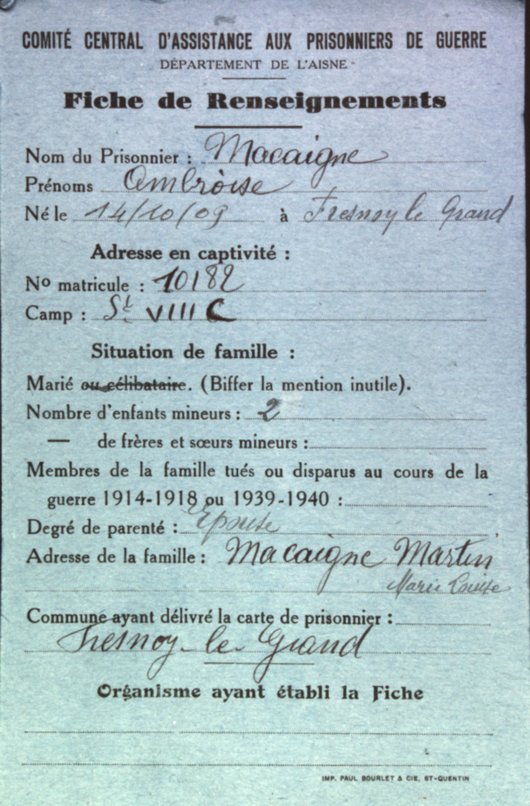 COMITÉ CENTRAL D'ASSISTANCE AUX PRISONNIERS DE GUERRE
DÉPARTEMENT DE L'AISNE
Fiche de Renseignements
Nom du Prisonnier : Macaigne
Prénoms Ambroise
Né le 14/10/09 à Fresnoy le Grand
Adresse en captivité :
No matricule : 10182
Camp : St VIII C
Situation de famille :
Marié ou célibataire. (Biffer la mention inutile).
Nombre d'enfants mineurs : 2
— de frères et sœurs mineurs :
Membres de la famille tués ou disparus au cours de la
guerre 1914-1918 ou 1939-1940 :
Degré de parenté : Epouse
Adresse de la famille : Macaigne Martin
Marie Louise
Commune ayant délivré la carte de prisonnier :
Fresnoy-le-Grand
Organisme ayant établi la Fiche
IMP. PAUL BOURLET & CIE, ST-QUENTIN